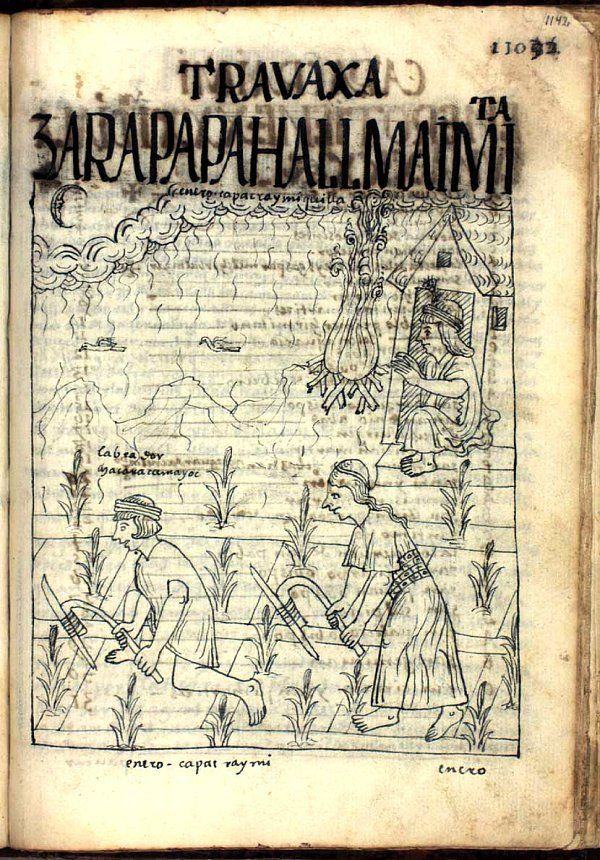 1142
TRAVAXA
ZARAPAPAHALLMAIMITA
enero-capac raymi quilla
labrador
chacaracamayoc
enero - capac raymi
enero